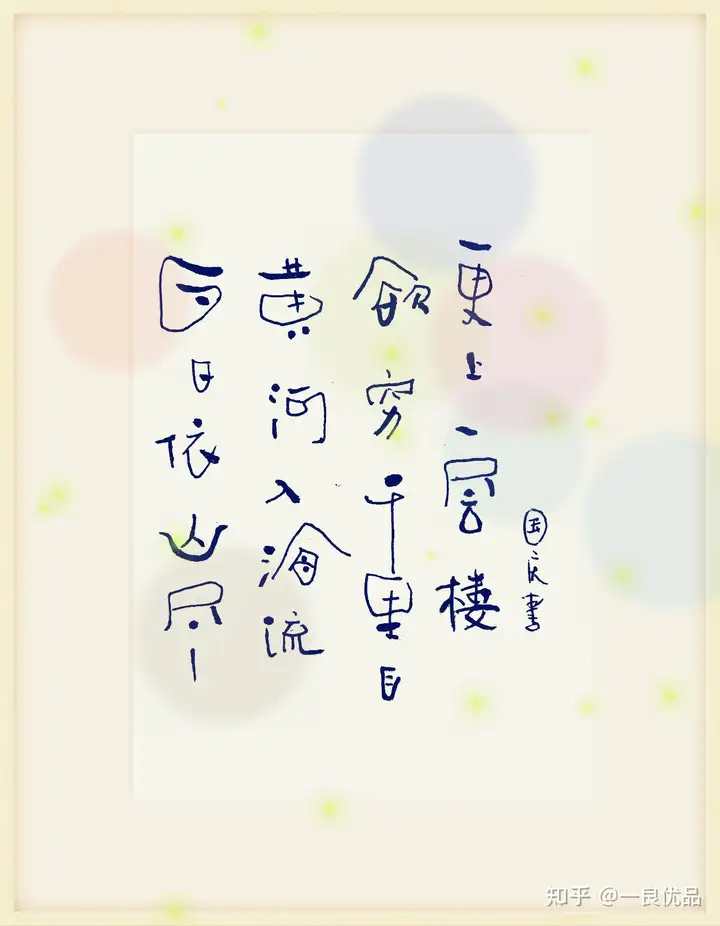 白日依山尽
黄河入海流
欲穷千里目
更上一层樓
国庆書
知乎 @一良优品